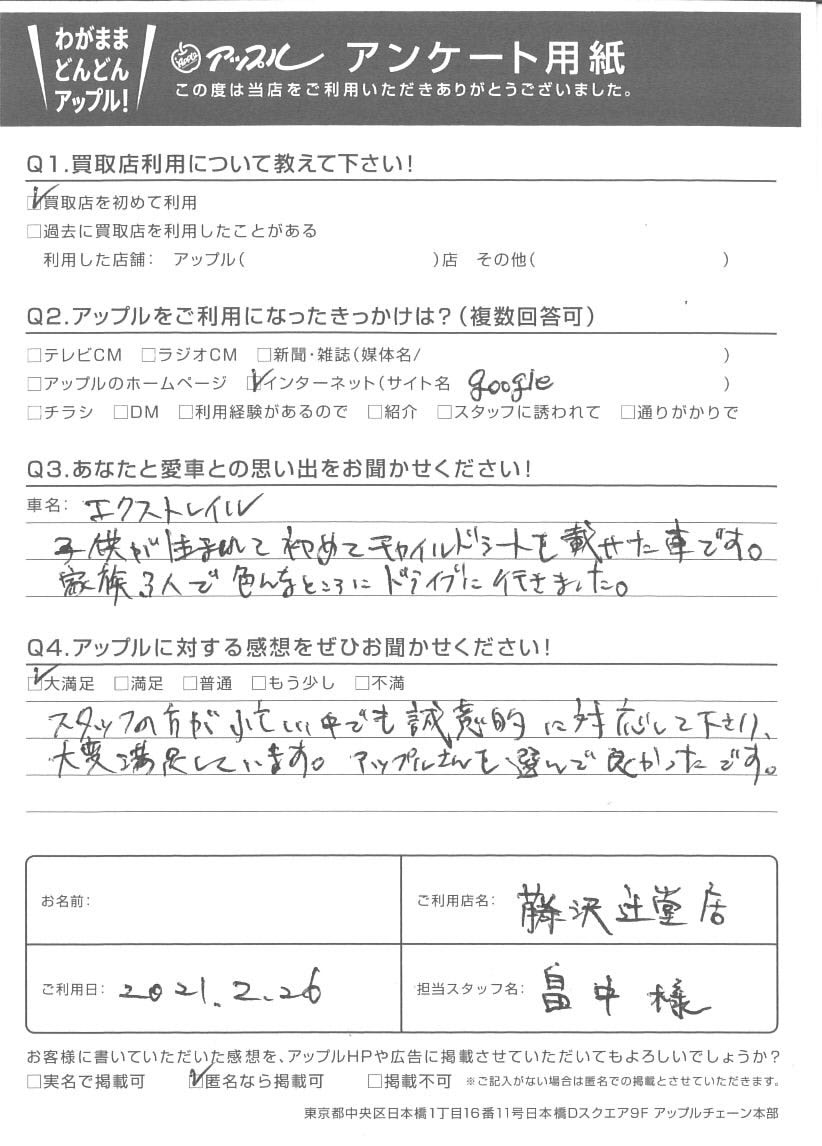 わがまま
どんどん
アップル!
Apple アップル アンケート用紙
この度は当店をご利用いただきありがとうございました。
Q1.買取店利用について教えて下さい!
☑買取店を初めて利用
□過去に買取店を利用したことがある
利用した店舗: アップル( )店 その他( )
Q2.アップルをご利用になったきっかけは?(複数回答可)
□テレビCM □ラジオCM □新聞・雑誌(媒体名/ )
□アップルのホームページ ☑インターネット(サイト名 google )
□チラシ □DM □利用経験があるので □紹介 □スタッフに誘われて □通りがかりで
Q3.あなたと愛車との思い出をお聞かせください!
車名: エクストレイル
子供が生まれて初めてチャイルドシートを載せた車です。
家族3人で色んなところにドライブに行きました。
Q4.アップルに対する感想をぜひお聞かせください!
☑大満足 □満足 □普通 □もう少し □不満
スタッフの方が忙しい中でも誠意的に対応して下さり、
大変満足しています。アップルさんを選んで良かったです。
お名前:
ご利用店名: 藤沢辻堂店
ご利用日: 2021.2.26
担当スタッフ名: 畠中様
お客様に書いていただいた感想を、アップルHPや広告に掲載させていただいてもよろしいでしょうか?
□実名で掲載可 ☑匿名なら掲載可 □掲載不可 ※ご記入がない場合は匿名での掲載とさせていただきます。
東京都中央区日本橋1丁目16番11号日本橋Dスクエア9F アップルチェーン本部